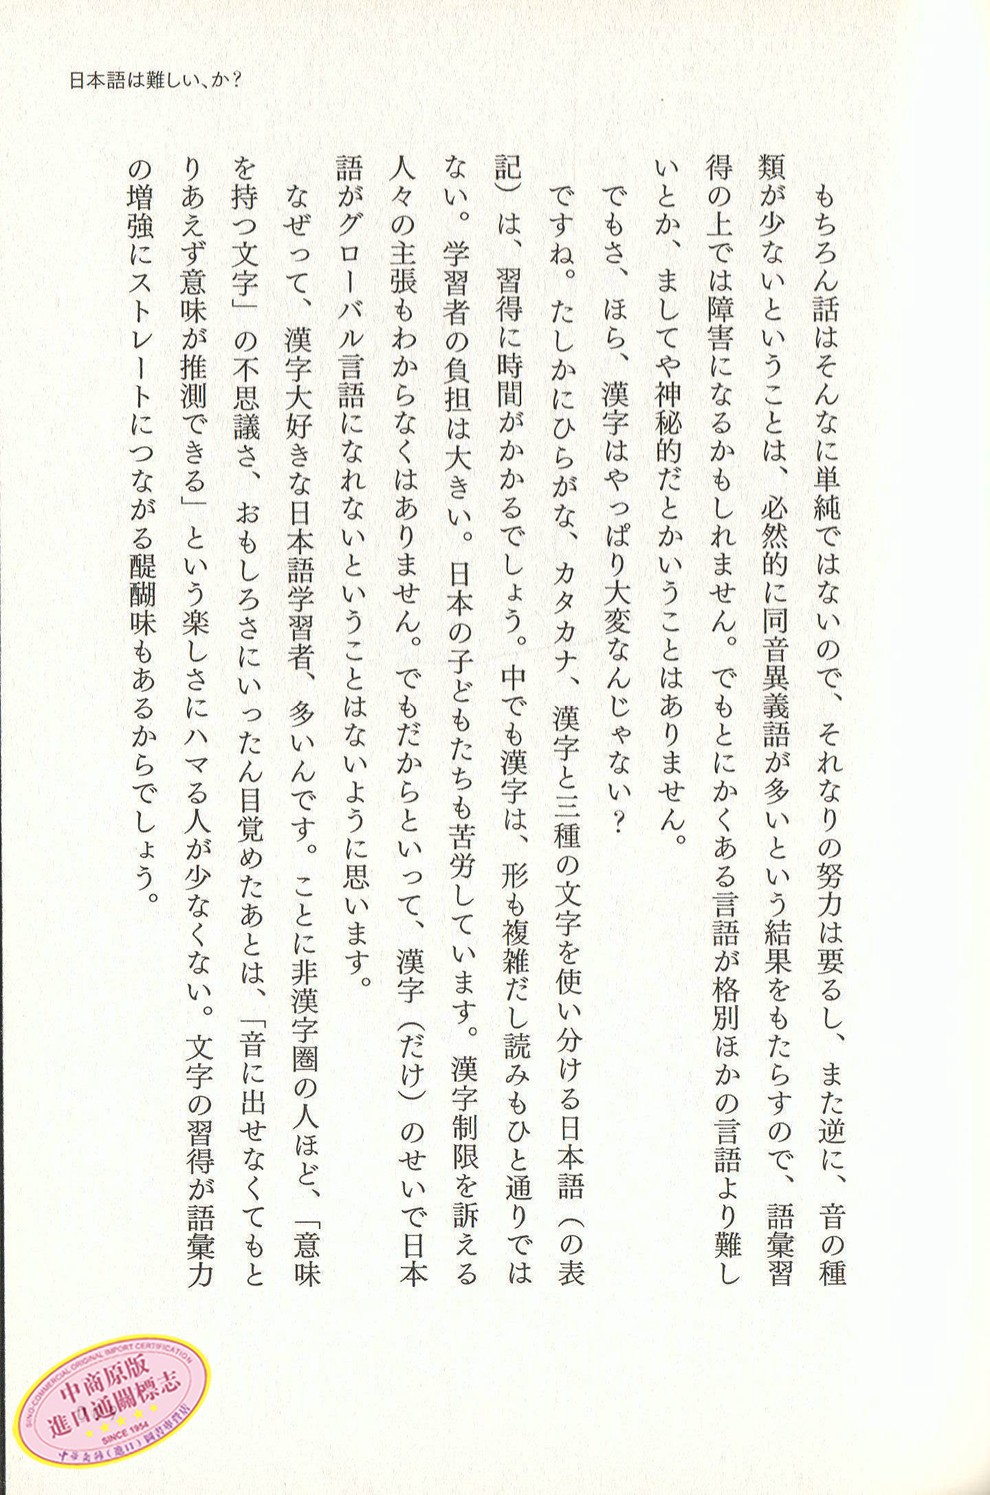 日本語は難しい、か?
もちろん話はそんなに単純ではないので、それなりの努力は要るし、また逆に、音の種
類が少ないということは、必然的に同音異義語が多いという結果をもたらすので、語彙習
得の上では障害になるかもしれません。でもとにかくある言語が格別ほかの言語より難し
いとか、ましてや神秘的だとかいうことはありません。
でもさ、ほら、漢字はやっぱり大変なんじゃない?
ですね。たしかにひらがな、カタカナ、漢字と三種の文字を使い分ける日本語(の表
記)は、習得に時間がかかるでしょう。中でも漢字は、形も複雑だし読みもひと通りでは
ない。学習者の負担は大きい。日本の子どもたちも苦労しています。漢字制限を訴える
人々の主張もわからなくはありません。でもだからといって、漢字(だけ)のせいで日本
語がグローバル言語になれないということはないように思います。
なぜって、漢字大好きな日本語学習者、多いんです。ことに非漢字圏の人ほど、「意味
を持つ文字」の不思議さ、おもしろさにいったん目覚めたあとは、「音に出せなくてもと
りあえず意味が推測できる」という楽しさにハマる人が少なくない。文字の習得が語彙力
の増強にストレートにつながる醍醐味もあるからでしょう。
SINO-COMMERCIAL ORIGINAL IMPORT CERTIFICATION
中商原版
進口通關標志
SINCE 1954